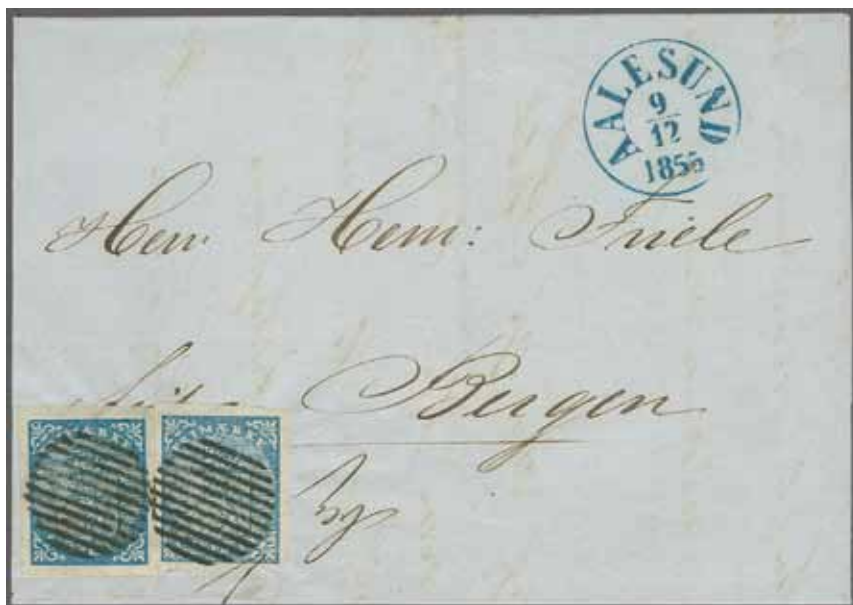 AALESUND
9
12
1855
Herr Herm: Friele
Bergen